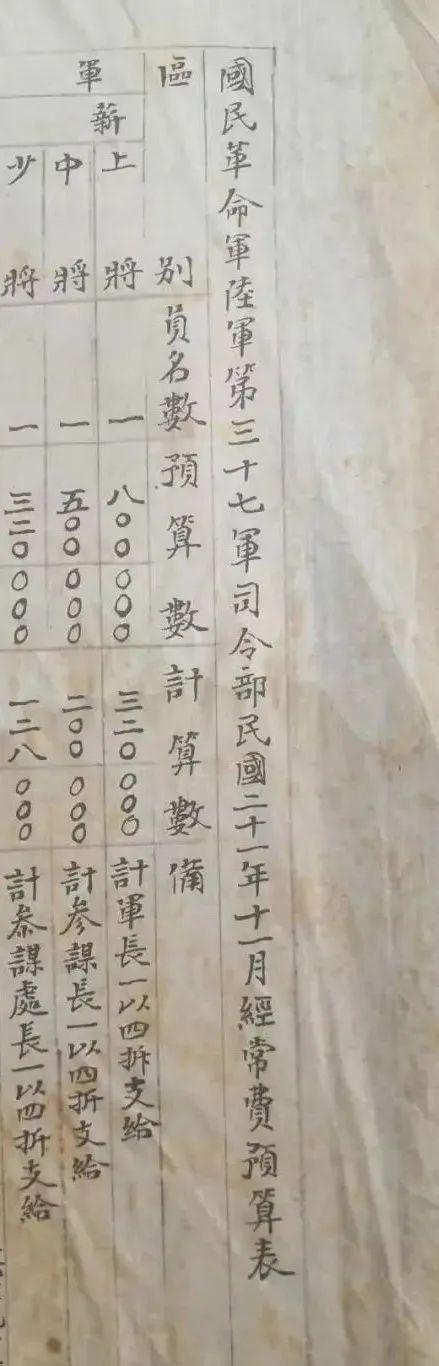 國民革命軍陸軍第三十七軍司令部民國二十一年十一月經常費預算表
區別 員名數 預算數 計算數 備
軍
薪
上將 一 八〇〇〇〇〇 三二〇〇〇〇 計軍長一以四折支給
中將 一 五〇〇〇〇〇 二〇〇〇〇〇 計參謀長一以四折支給
少將 一 三二〇〇〇〇 一二八〇〇〇 計參謀處長一以四折支給